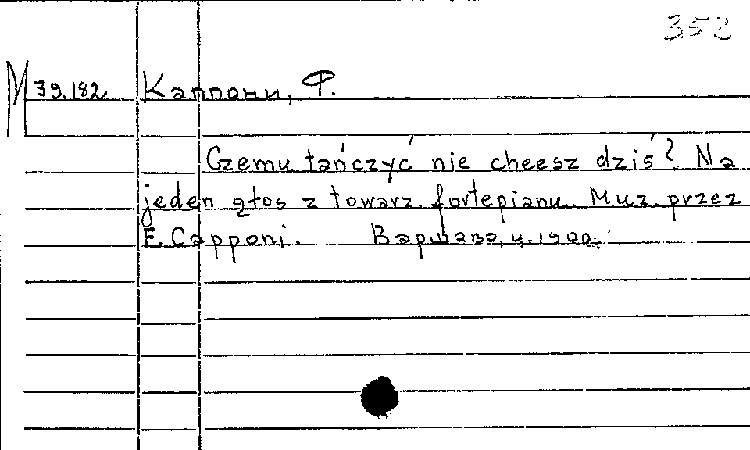 352
M 39.182 Каппони, Ф.
Czemu tańczyć nie cheesz dziś? Na
jeden głos z towarz. fortepianu. Muz. przez
F. Capponi. Варшава, ц. 1900.